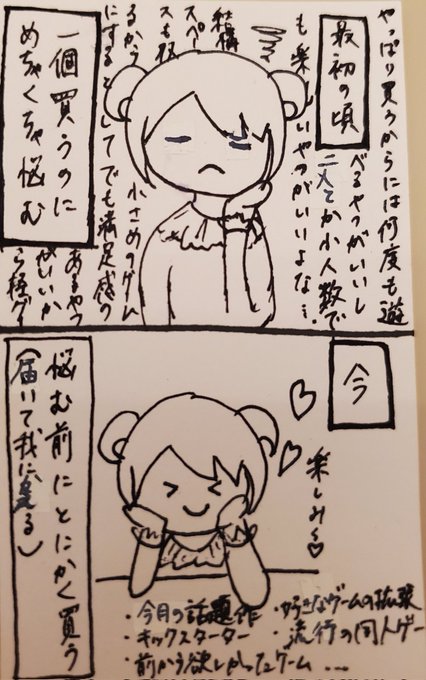 最初の頃
やっぱり買うからには何度も遊
べるやつがいいし
二人とか小人数で
も楽しいやつがいいよな…
結構
スペー
スも取
るから
小さめのゲーム
にするとしてでも満足感の
あるやつ
がいいか
ら
一個買うのに
めちゃくちゃ悩む
今
楽しみ〜♡
・今月の話題作
・キックスターター
・前から欲しかったゲーム …
・好きなゲームの拡張
・流行の同人ゲー
悩む前にとにかく買う
(届いて我に返る)